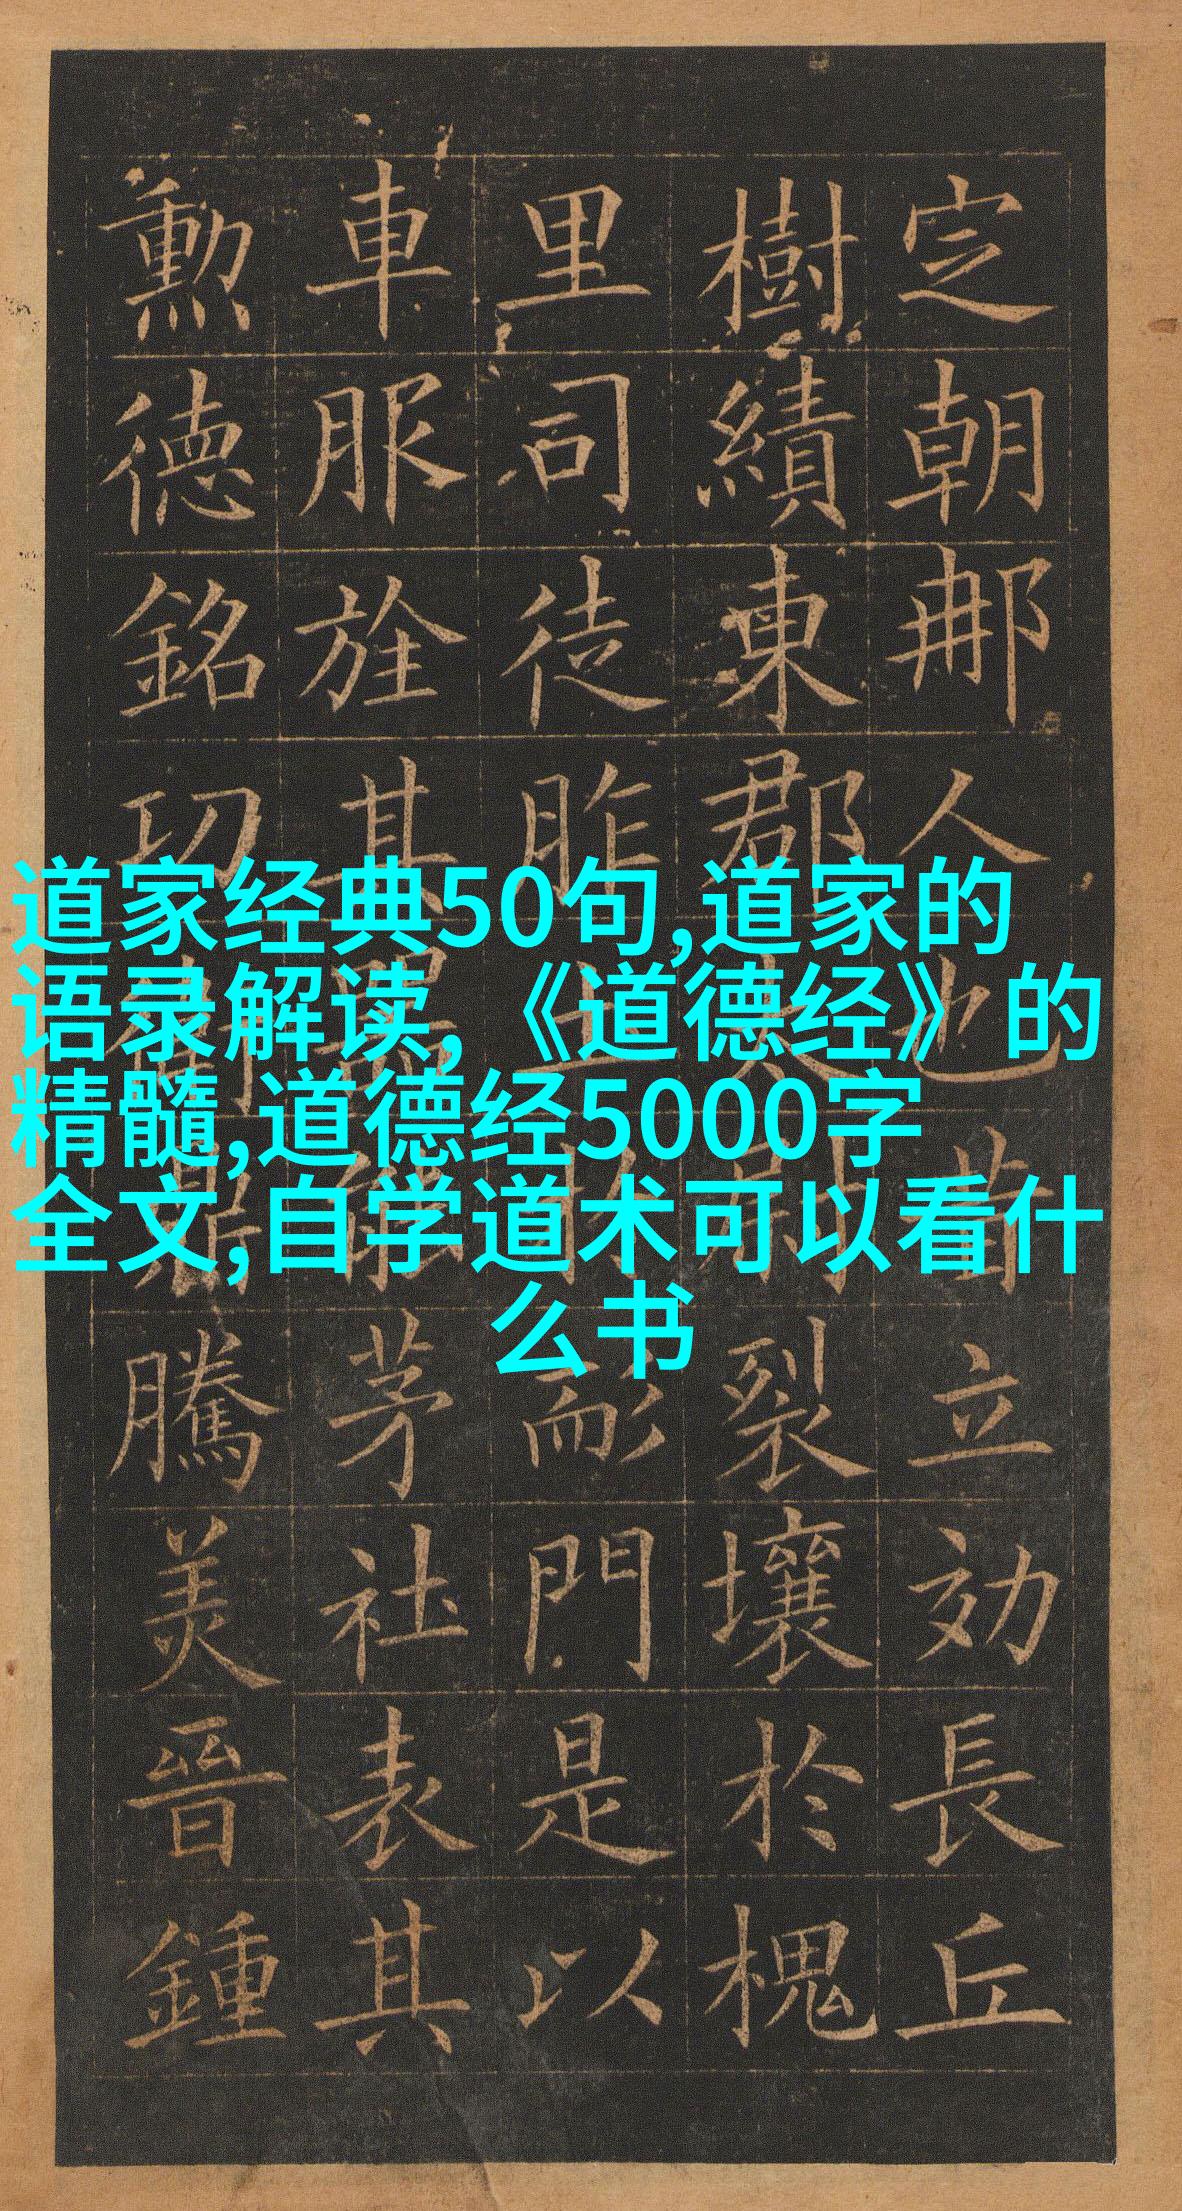 道家经典50句,道家的
语录解读,《道德经》的
精髓,道德经5000字
全文,自学道术可以看什
么书
定朝那人也昔立効長丘
樹績東郡太尉裂壤於槐
里司徒胙土於耏門是以
車服旌其器能茅社表其
勳德銘功衛鼎騰美晉鍾